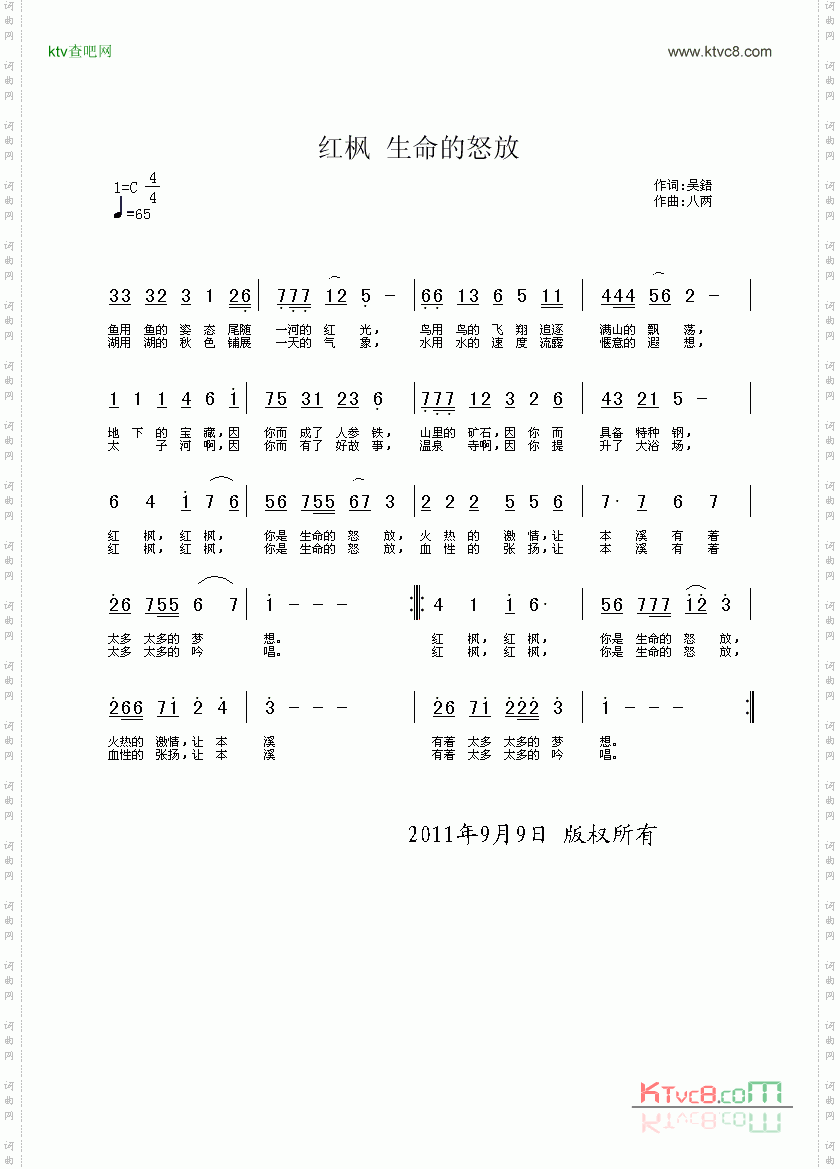 ktv查吧网 www.ktvc8.com
红枫 生命的怒放
1=C 4/4
=65
作词:吴铻
作曲:八两
33 32 3 1 26 | 777 12 5 - | 66 13 6 5 11 | 444 56 2 - |
鱼用 鱼的 姿 态 尾随 一河的 红 光, 鸟用 鸟的 飞 翔 追逐 满山的 飘 荡,
湖用 湖的 秋 色 铺展 一天的 气 象, 水用 水的 速 度 流露 惬意的 遐 想,
1 1 1 4 6 1 | 75 31 23 6 | 777 12 3 2 6 | 43 21 5 - |
地 下 的 宝 藏,因 你而 成了 人参 铁, 山里的 矿石,因 你 而 具备 特种 钢,
太 子 河 啊,因 你而 有了 好故 事, 温泉 寺啊,因 你 提 升了 大浴 场,
6 4 1 7 6 | 56 755 67 3 | 2 2 2 5 5 6 | 7· 7 6 7 |
红 枫,红 枫, 你是 生命的 怒 放,火 热 的 激 情,让 本 溪 有 着
红 枫,红 枫, 你是 生命的 怒 放,血 性 的 张 扬,让 本 溪 有 着
26 755 6 7 | 1 - - - :‖: 4 1 1 6· | 56 777 12 3 |
太多 太多的 梦 想。 红 枫,红 枫, 你是 生命的 怒 放,
太多 太多的 吟 唱。 红 枫,红 枫, 你是 生命的 怒 放,
266 71 2 4 | 3 - - - | 26 71 222 3 | 1 - - - :‖
火热的 激情,让 本 溪 有着 太多 太多的 梦 想。
血性的 张扬,让 本 溪 有着 太多 太多的 吟 唱。
2011年9月9日 版权所有
KTvc8.com